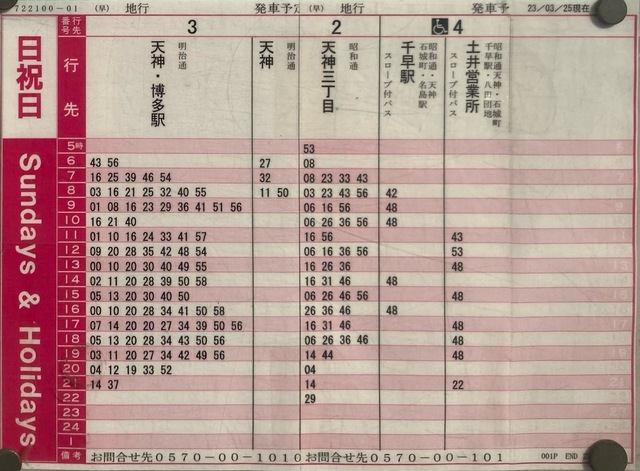 722100-01 (早) 地行 発車予定 (早) 地行 発車予 23/03/25現在
番号 行先 3 2 4
日祝日
行先
天神・博多駅 明治通
天神 明治通
天神三丁目 昭和通
千早駅 昭和通・天神 石城町・名島駅 スロープ付バス
土井営業所 昭和通天神・石城町 千早駅・八田団地 スロープ付バス
Sundays & Holidays
5時 53
6 43 56 27 08
7 16 25 39 46 54 32 08 23 33 43
8 03 16 21 25 32 40 55 11 50 03 23 43 56 42
9 01 08 16 23 29 36 41 51 56 06 16 56 48
10 16 21 40 06 26 36 56 48
11 01 10 16 24 33 41 57 16 56 43
12 09 20 28 35 42 48 54 06 16 36 56 53
13 00 10 20 30 40 49 55 16 26 36 48
14 02 11 20 28 39 50 58 16 31 46 48
15 05 13 20 30 40 50 06 26 46 56 48
16 00 10 20 28 34 41 50 58 26 36 46 48
17 07 14 20 20 27 34 39 50 56 16 31 46 48
18 05 13 20 28 34 43 50 56 06 26 36 46 48
19 03 11 20 27 34 42 49 56 14 44 48
20 04 12 19 33 52 04
21 14 37 14 22
22 29
23
24
1
備考 お問合せ先0570-00-1010 お問合せ先0570-00-101 001P END